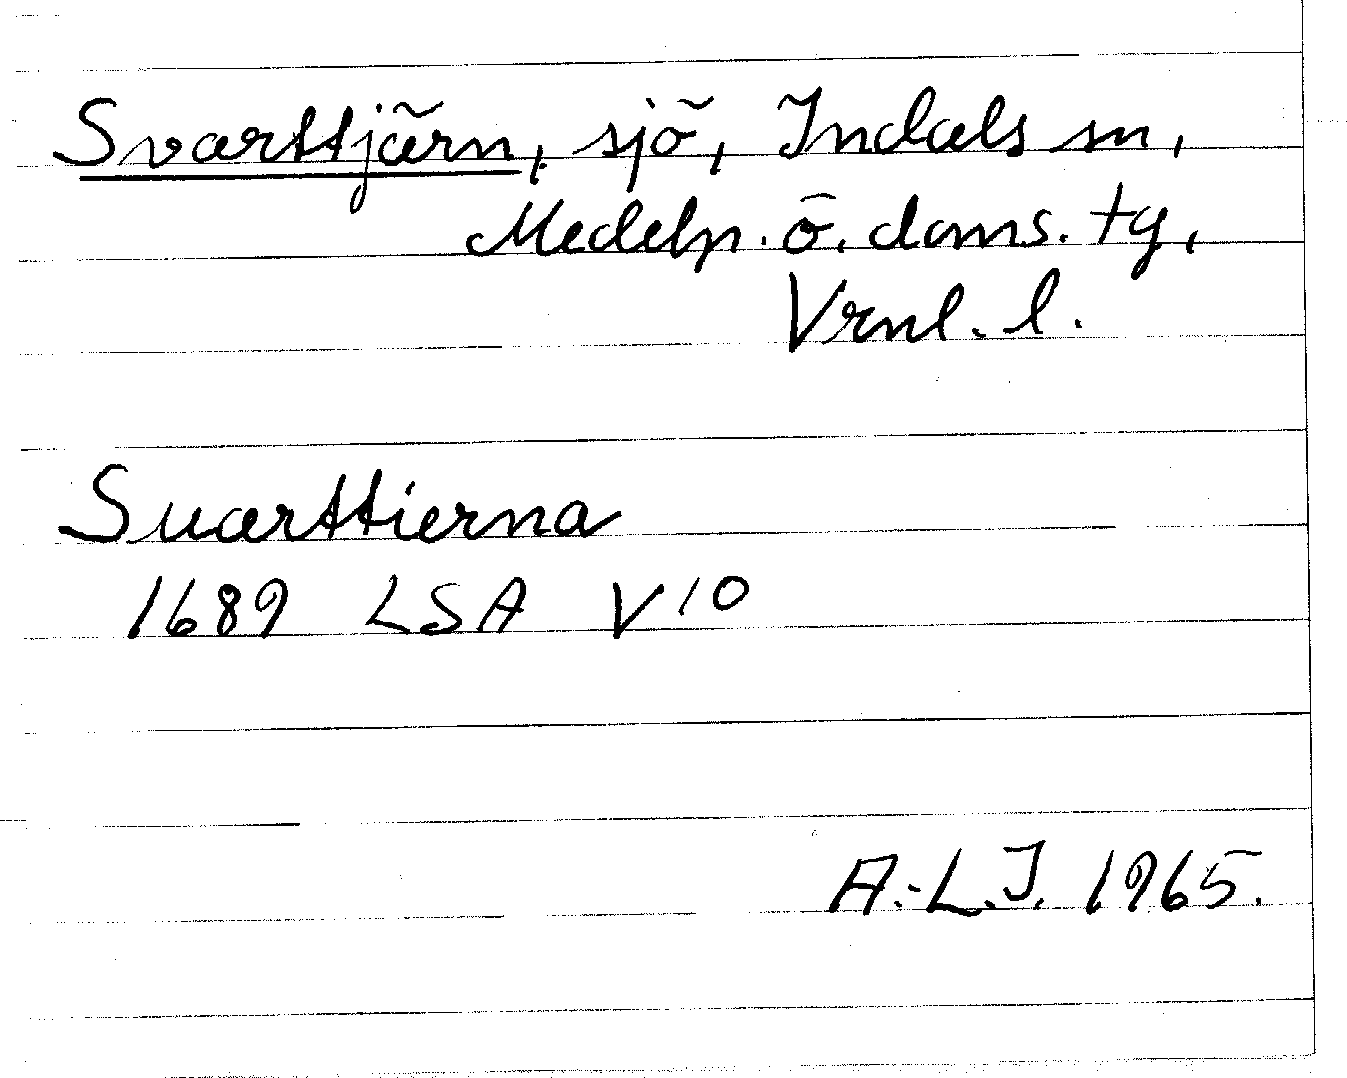 Svarttjärn, sjö, Indals sn,
Medelp. ö. doms. tg,
Vrnl. l.
Suarttierna
1689 LSA V10
A.-L.J. 1965.